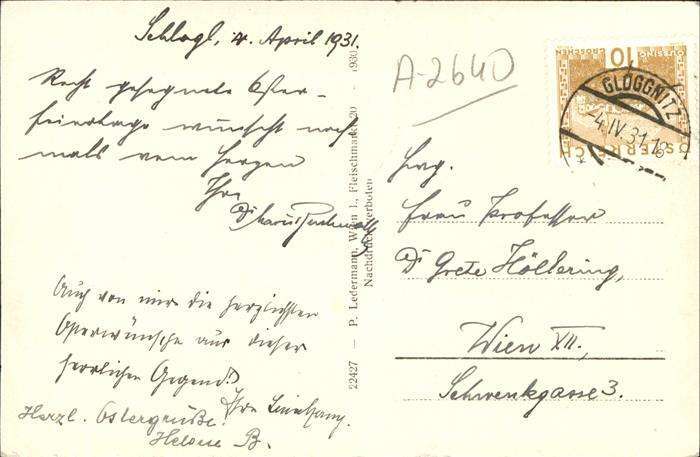 Schlagl, 4. April 1931.
Recht gesegnete Oster-
feiertage wünscht noch
mals vom Herzen
Ihr
Auch von mir die herzlichsten
Osterwünsche aus dieser
herrlichen Gegend!
Ihre
Herzl. Ostergrüße.
Helene B.
22427 — P. Ledermann, Wien I., Fleischmarkt 20 - 1930
Nachdruck verboten
A-2640
10 GROSCHEN
ÖSTERREICH
GLOGGNITZ
-4.IV.31
Frau Professor
Dr Grete Höllering,
Wien XII.,
Schwenkgasse 3.